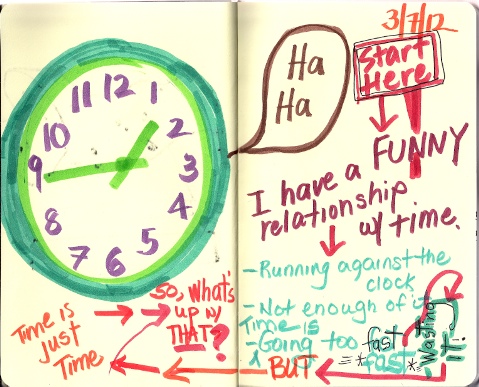 3/7/12
Start
Here
FUNNY
I have a
relationship
w/ time.
- Running against the
clock
- Not enough of it
Time is
- Going too fast
*fast*
- Wasting
it!
BUT
Time is
just
Time
So, what's
up w/
THAT?
Ha
Ha
11 12 1
10 2
9 3
8 4
7 6 5